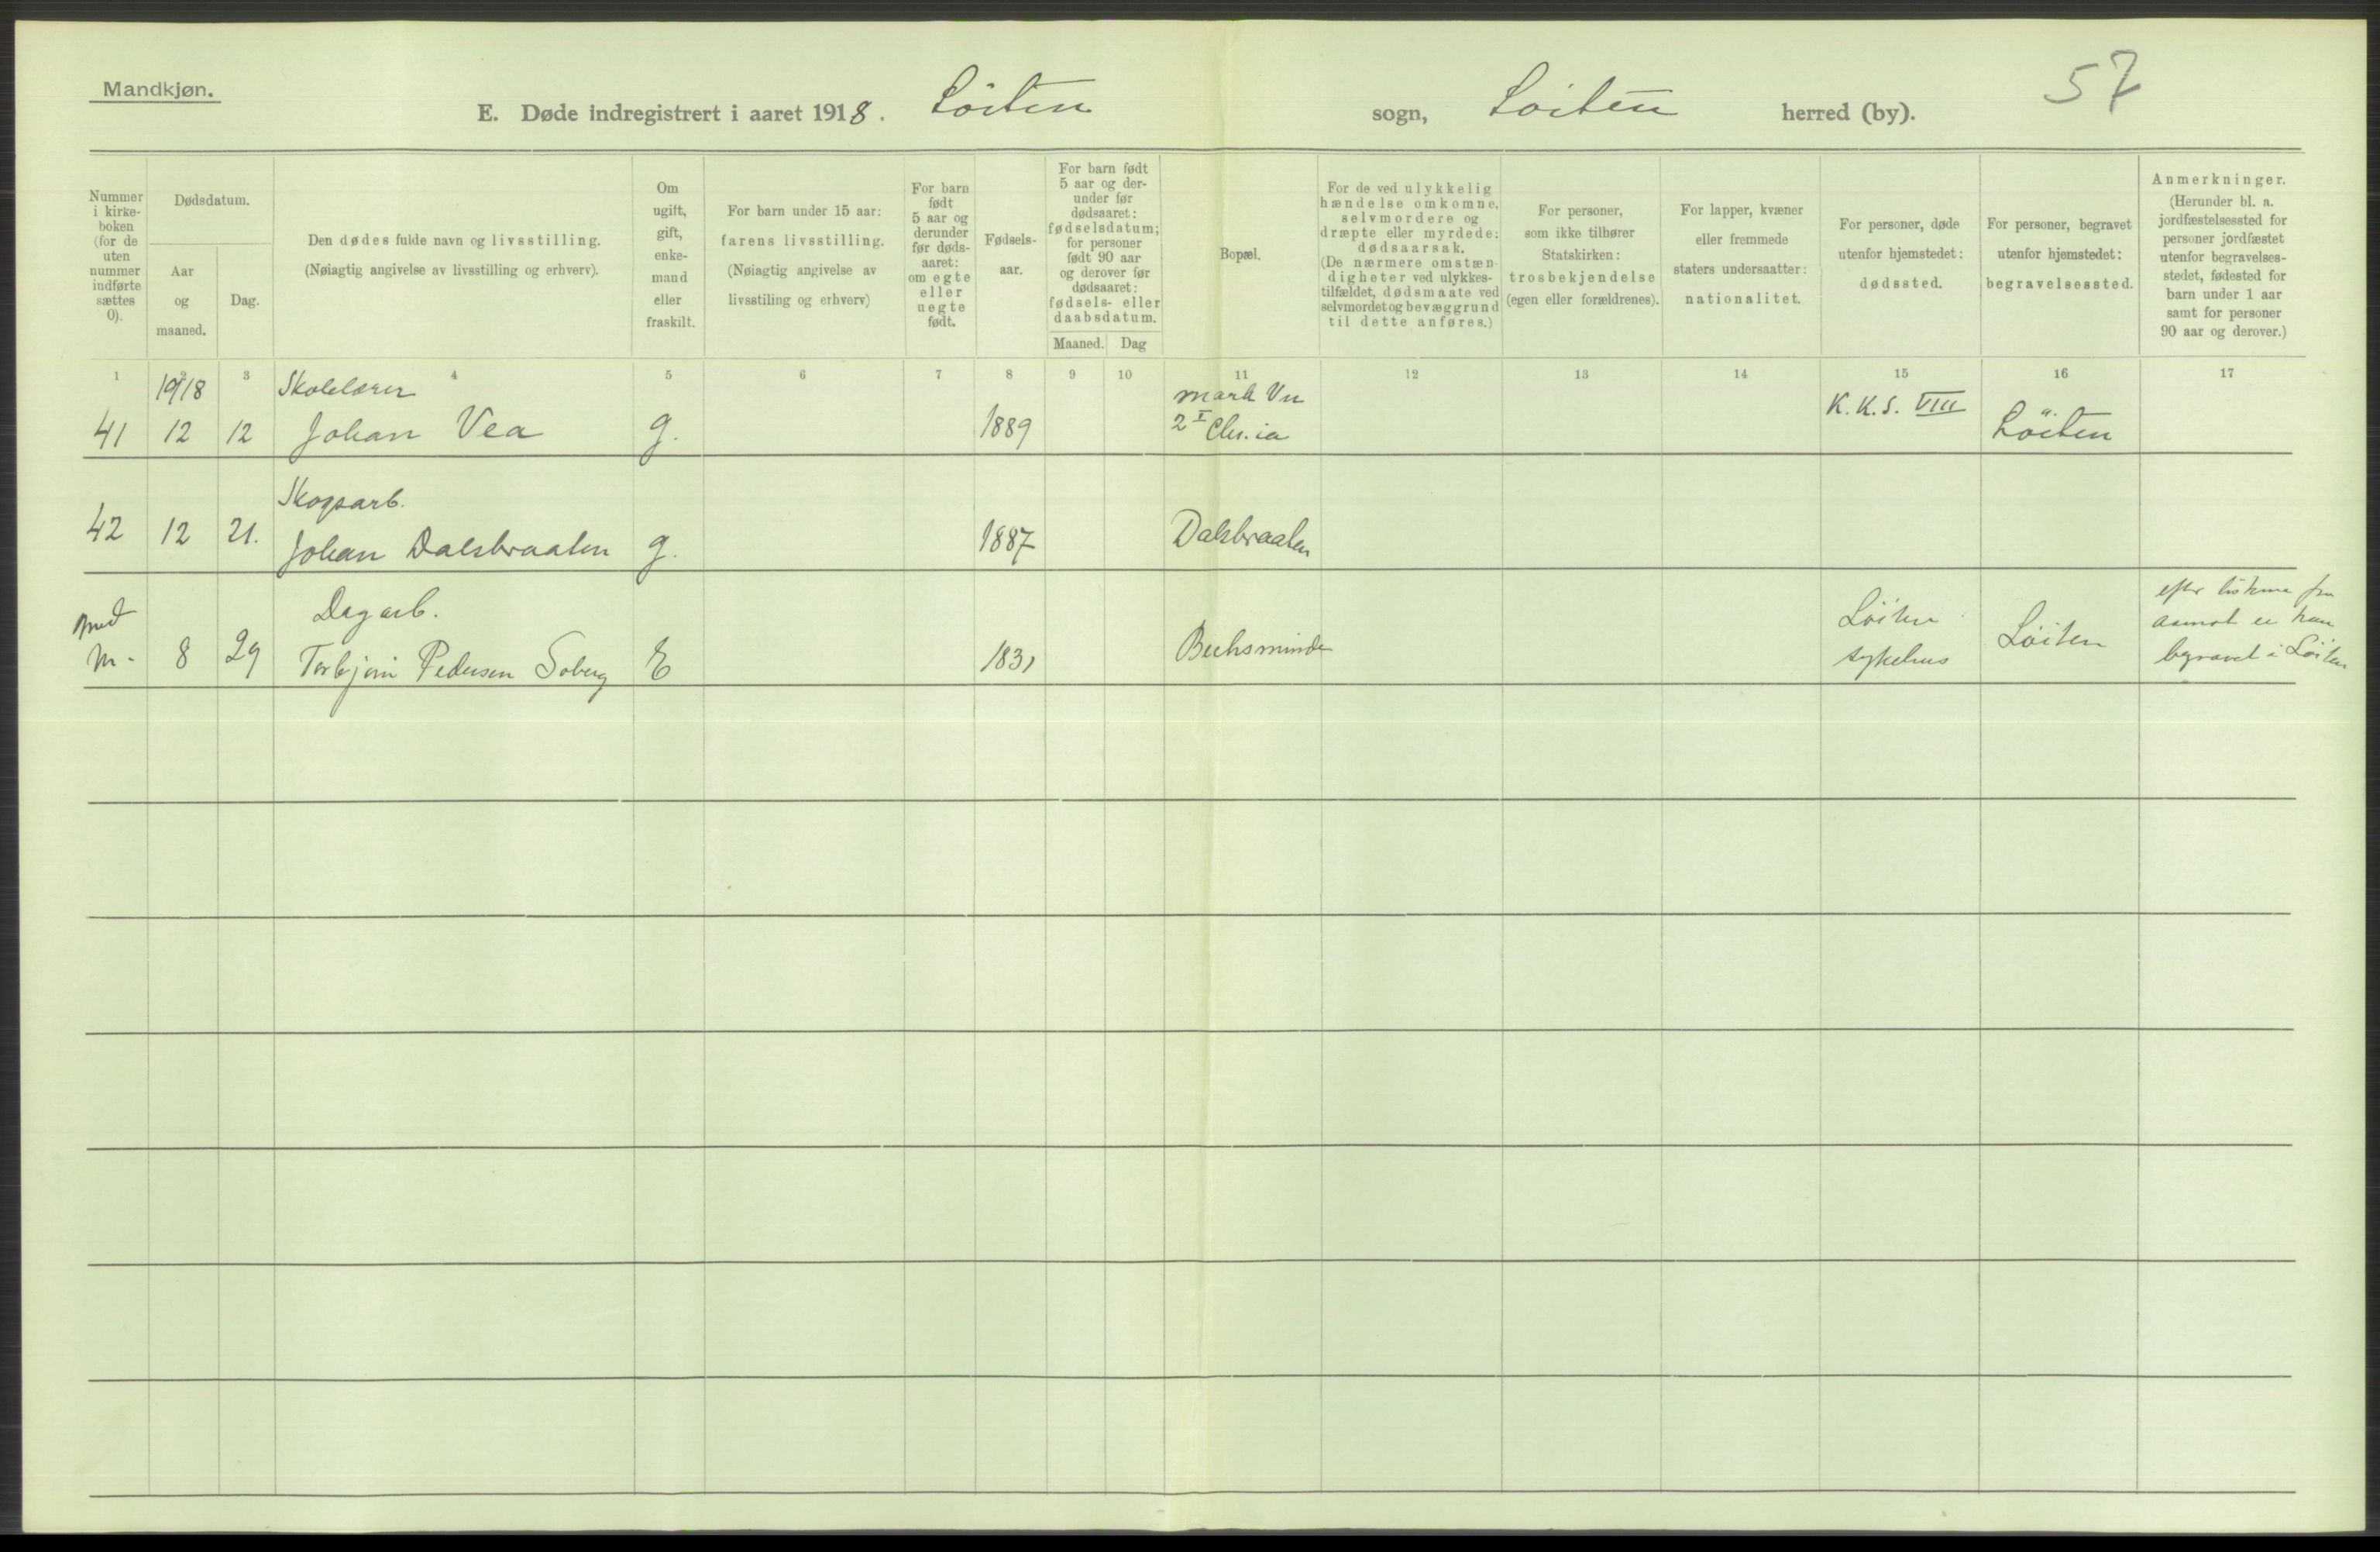 Mandkjøn.
57
E. Døde indregistrert i aaret 1918. Löiten sogn, Löiten herred (by).
Nummer i kirke-boken (for de uten nummer indførte sættes 0).
Dødsdatum.
Aar og maaned.
Dag.
Den dødes fulde navn og livsstilling.
(Nøiagtig angivelse av livsstilling og erhverv).
Om ugift, gift, enke-mand eller fraskilt.
For barn under 15 aar:
farens livsstilling.
(Nøiagtig angivelse av
livsstiling og erhverv)
For barn født 5 aar og derunder før døds-aaret: om egte eller uegte født.
Fødsels-aar.
For barn født 5 aar og der-under før dødsaaret: fødselsdatum; for personer født 90 aar og derover før dødsaaret: fødsels- eller daabsdatum.
Maaned. Dag
Bopæl.
For de ved ulykkelig hændelse omkomne, selvmordere og dræpte eller myrdede: dødsaarsak.
(De nærmere omstæn-digheter ved ulykkes-tilfældet, dødsmaate ved selvmordet og bevæggrund til dette anføres.)
For personer, som ikke tilhører Statskirken: trosbekjendelse (egen eller forældrenes).
For lapper, kvæner eller fremmede staters undersaatter: nationalitet.
For personer, døde utenfor hjemstedet: dødssted.
For personer, begravet utenfor hjemstedet: begravelsessted.
Anmerkninger.
(Herunder bl. a. jordfæstelsessted for personer jordfæstet utenfor begravelses-stedet, fødested for barn under 1 aar samt for personer 90 aar og derover.)
1 2 3 4 5 6 7 8 9 10 11 12 13 14 15 16 17
1918 Skolelærer mark Vn K.K.S. VIII
41 12 12 Johan Vea g. 1889 2 I Chr.ia Löiten
Skogsarb.
42 12 21. Johan Dalsbraaten g. 1887 Dalsbraaten
Dagarb. Löiten efter listerne fra
M. 8 29 Torbjörn Pedersen Soberg E 1831 Bechsminde sykehus Löiten aamot er han
begravet i Löiten